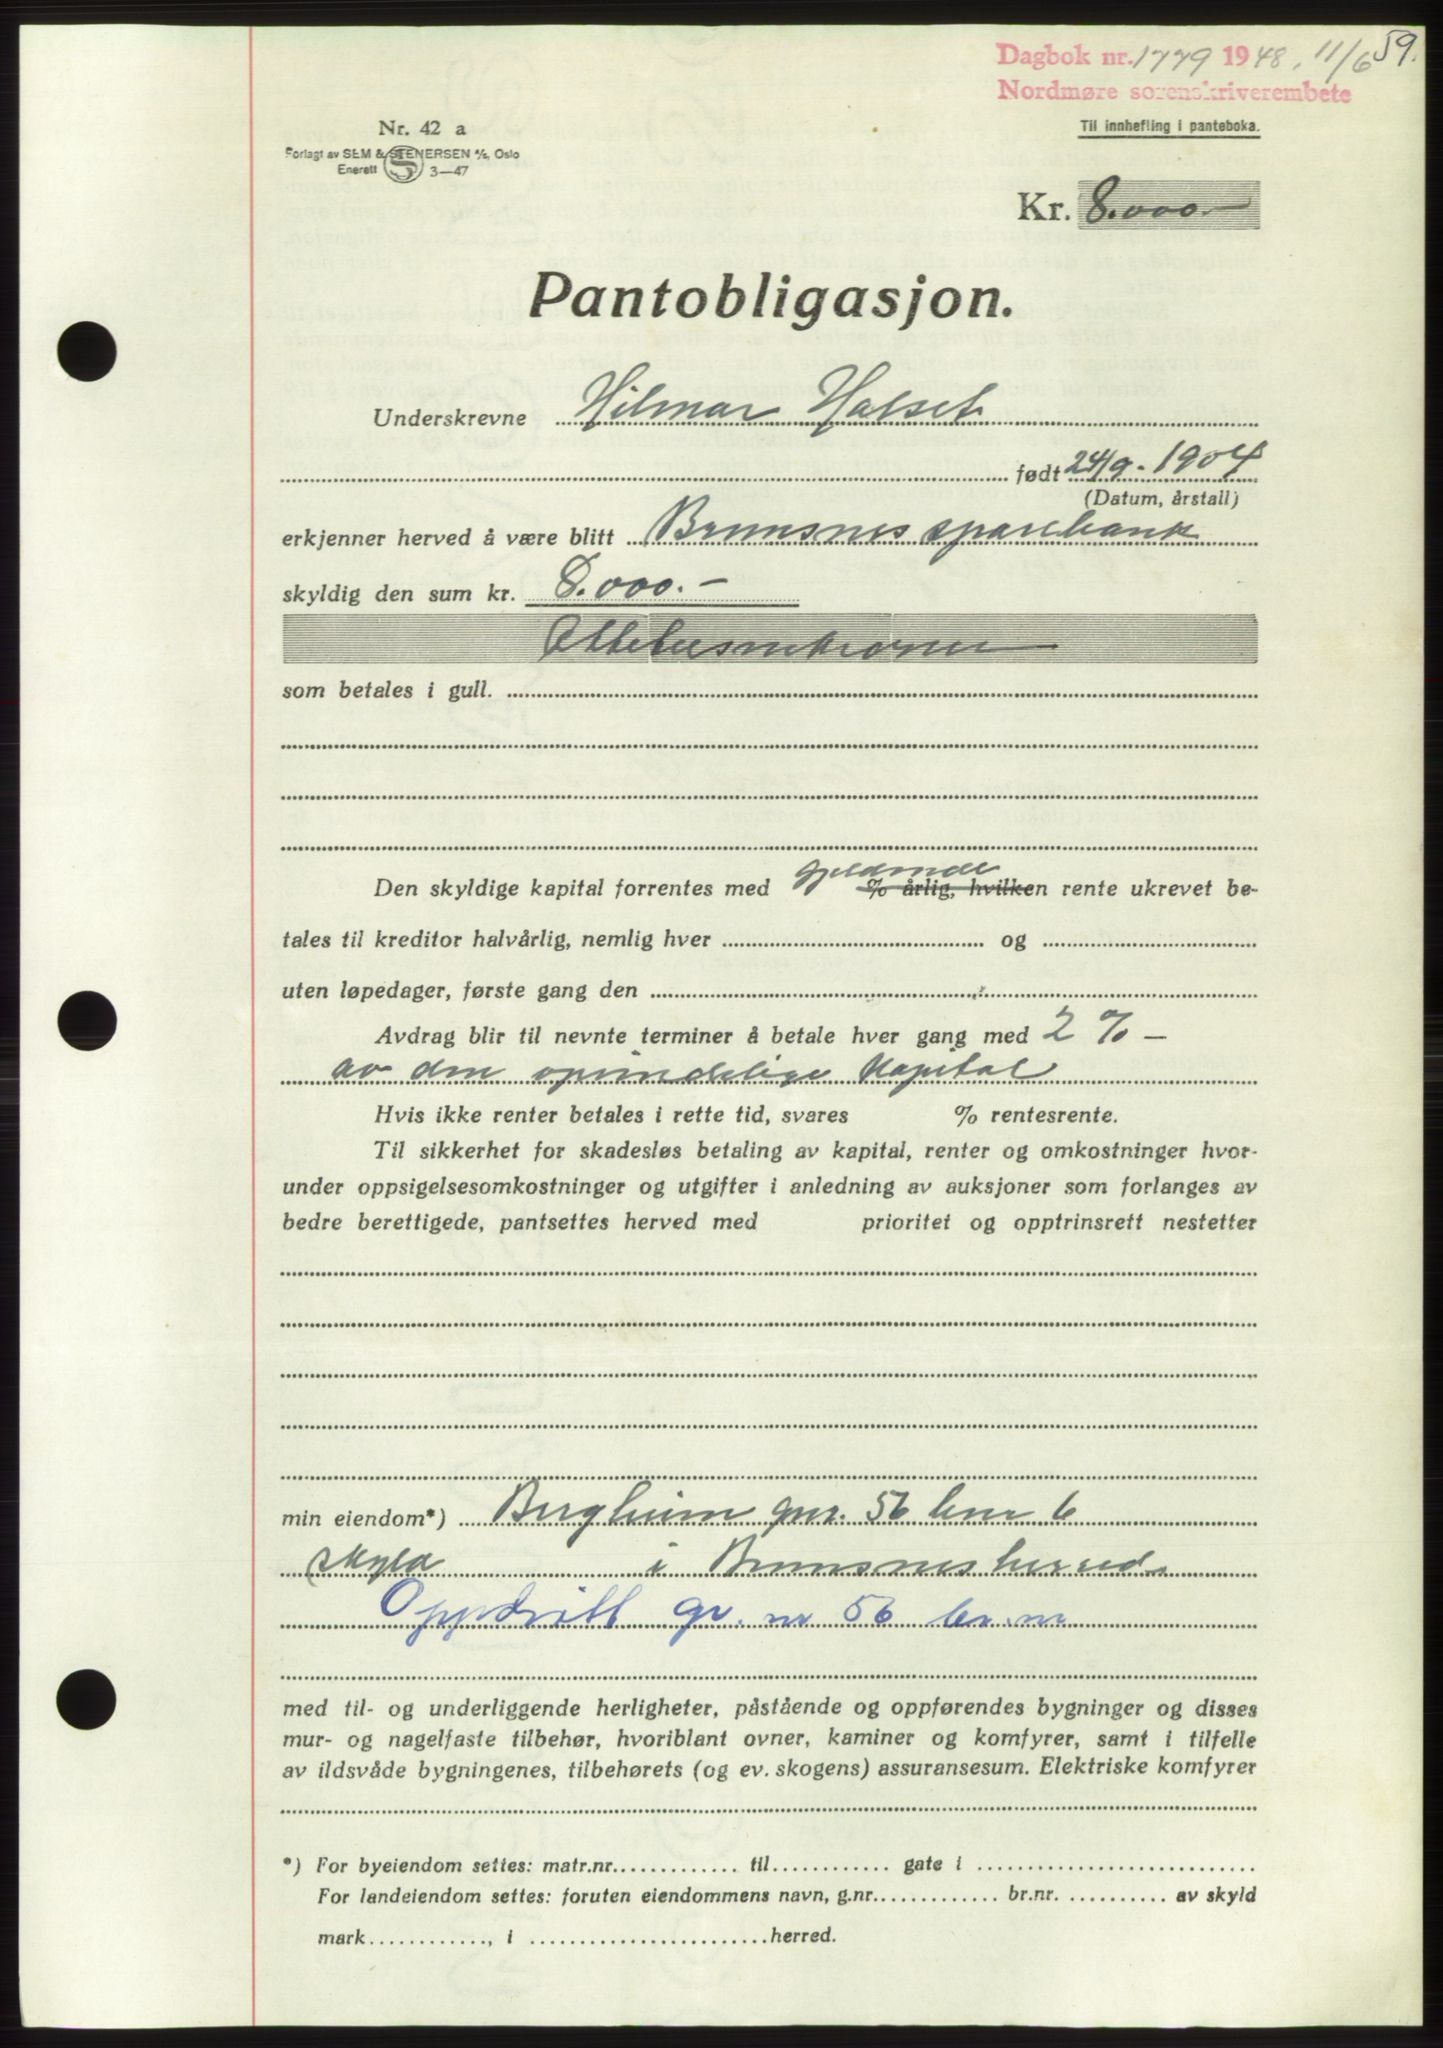 59.
Dagbok nr. 1779 1948. 11/6
Nordmøre sorenskriverembete
Nr. 42 a
Til innhefting i panteboka.
Forlagt av SEM & STENERSEN A/S, Oslo
Enerett S 3—47
Kr. 8.000.-
Pantobligasjon.
Underskrevne Hilmar Halset
født 24/9. 1904
(Datum, årstall)
erkjenner herved å være blitt Bremsnes sparebank
skyldig den sum kr. 8.000.-
Ottetusenkroner
som betales i gull.
gjeldende
Den skyldige kapital forrentes med % årlig, hvilken rente ukrevet be-
tales til kreditor halvårlig, nemlig hver og
uten løpedager, første gang den
Avdrag blir til nevnte terminer å betale hver gang med 2 % —
av den oprindelige kapital
Hvis ikke renter betales i rette tid, svares % rentesrente.
Til sikkerhet for skadesløs betaling av kapital, renter og omkostninger hvor-
under oppsigelsesomkostninger og utgifter i anledning av auksjoner som forlanges av
bedre berettigede, pantsettes herved med prioritet og opptrinsrett nestetter
min eiendom*) Bergheim gnr. 56 bnr 6
skyld i Bremsnes herred
Oppdritt gr. nr 56 br. nr
med til- og underliggende herligheter, påstående og oppførendes bygninger og disses
mur- og nagelfaste tilbehør, hvoriblant ovner, kaminer og komfyrer, samt i tilfelle
av ildsvåde bygningenes, tilbehørets (og ev. skogens) assuransesum. Elektriske komfyrer
*) For byeiendom settes: matr.nr. til gate i
For landeiendom settes: foruten eiendommens navn, g.nr. br.nr. av skyld
mark , i herred.